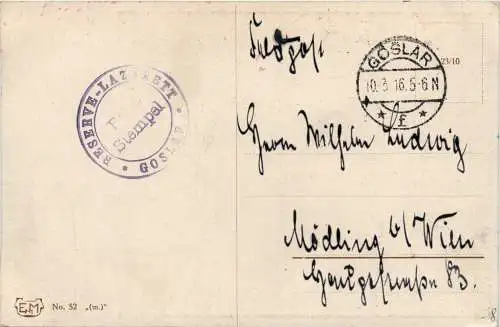 Feldpost
GOSLAR
10.3.16.5-6N
* f *
23/10
RESERVE-LAZARETT
* GOSLAR *
Stempel
Herrn Wilhelm Ludwig
Mödling b/Wien
83.
EM
No. 52 „(m.)"